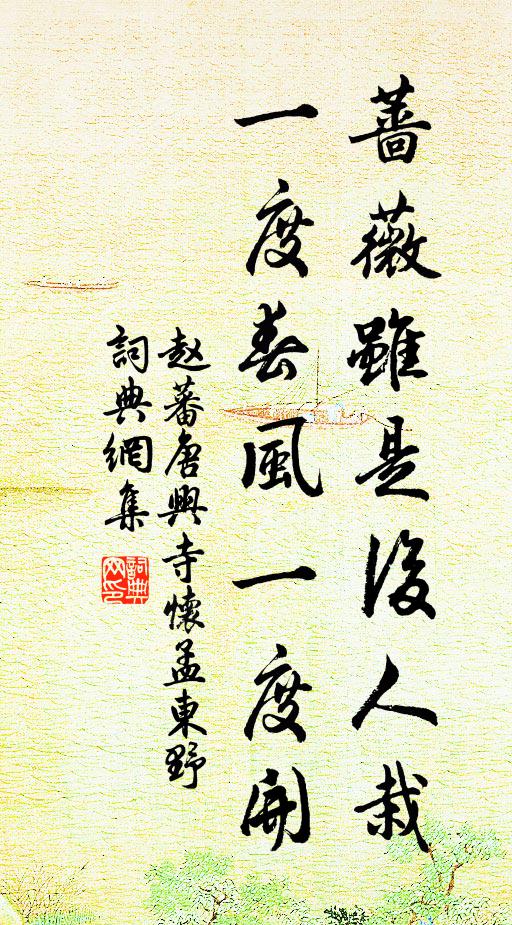 薔薇雖是後人栽
一度春風一度開
赵蕃唐興寺懷孟東野
詞典網集
詞典
网印